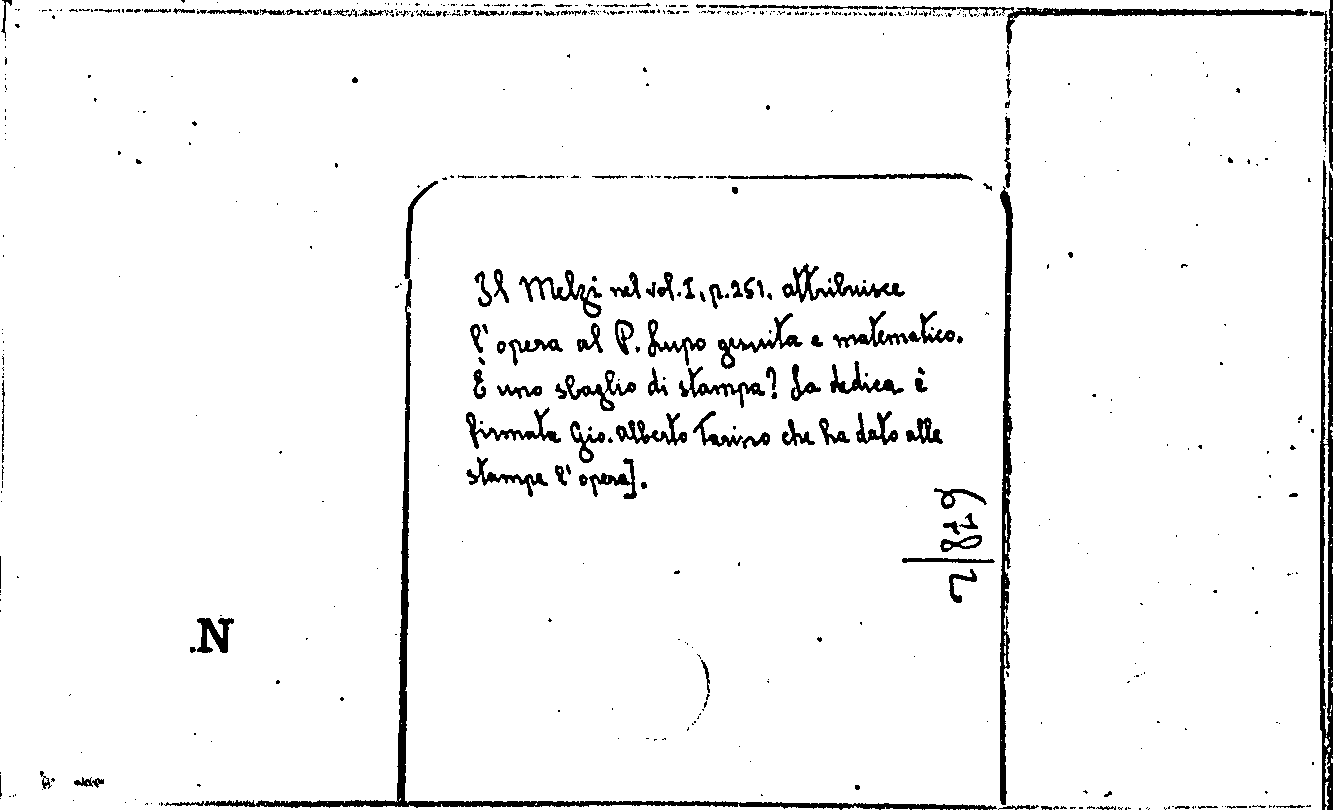 Il Melzi nel vol. I, p. 251. attribuisce
l'opera al P. Lupo gesuita e matematico.
È uno sbaglio di stampa? La dedica è
firmata Gio. Alberto Tarino che ha dato alle
stampe l'opera].
6782
N